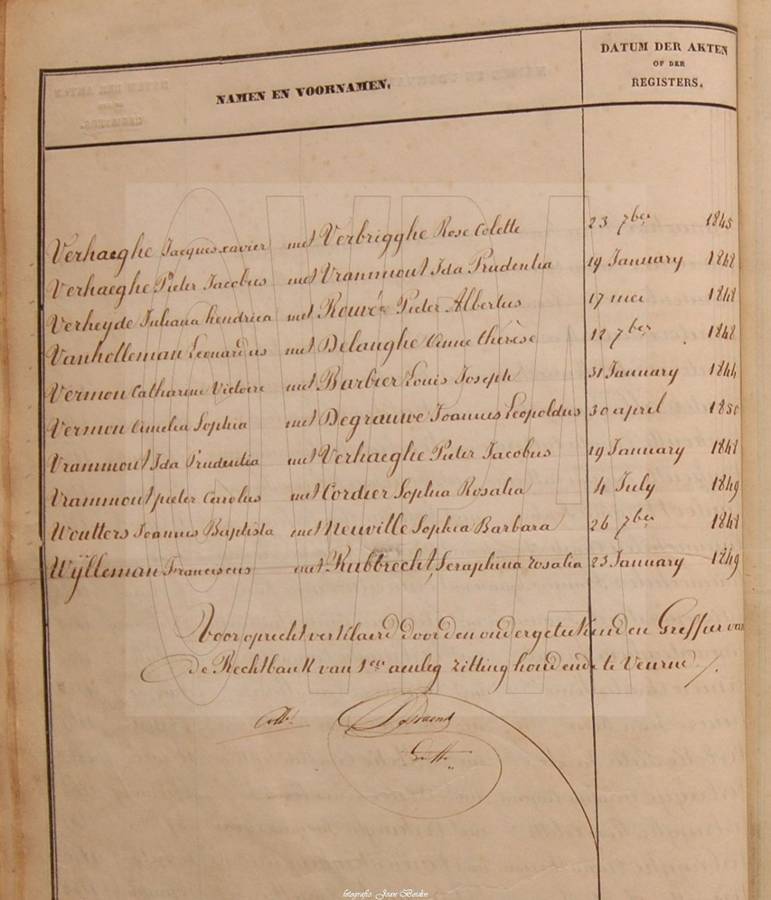 DATUM DER AKTEN
OF DER
REGISTERS.
NAMEN EN VOORNAMEN.
Verhaeghe Jacques xavier met Verbrigghe Rose Colette 23 7ber 1843
Verhaeghe Pieter Jacobus met Vrammout Ida Prudentia 19 January 1848
Verheyde Juliana hendrica met Rouvé Pieter Albertus 17 mei 1848
Vanhelleman Leonardus met Delanghe Thérèse 12 7ber 1848
Vermon Catharine Victoire met Barbier Louis Joseph 31 January 1844
Vermon Amelia Sophia met Degrauwe Joannes Leopoldus 30 april 1850
Vrammout Ida Prudentia met Verhaeghe Pieter Jacobus 19 January 1848
Vrammout pieter Carolus met Cordier Sophia Rosalia 4 July 1849
Woutters Joannes Baptista met Neuville Sophia Barbara 26 7ber 1848
Wÿlleman Franciscus met Rubbrecht, Seraphina rosalia 23 January 1849
Voor oprecht verklaerd door den ondergeteekenden Greffier van
de Rechtbank van 1en aenleg zitting houdende te Veurne
fotografie Joan Berden